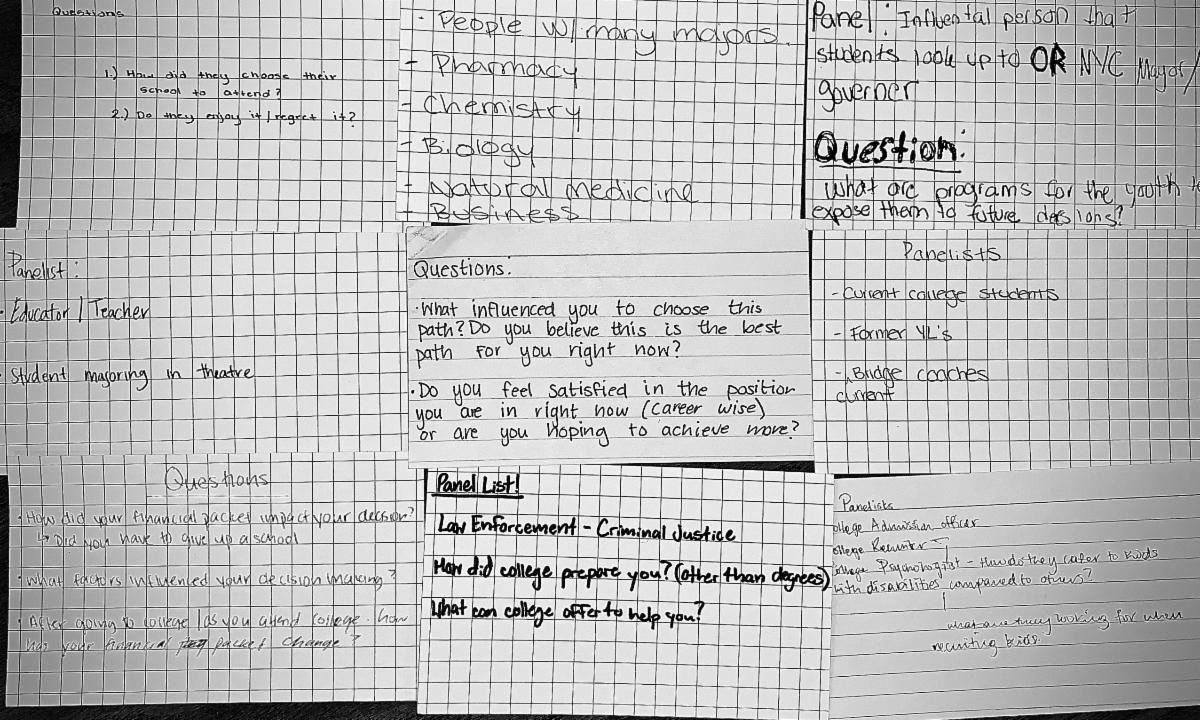 Questions
1.) How did they choose their
school to attend?
2.) Do they enjoy it/regret it?
- People w/ many majors.
- Pharmacy
- Chemistry
- Biology
- Natural medicine
- Business
Panel: Influental person that
students look up to OR NYC Mayor/
governer
Question:
What are programs for the youth to
expose them to future desions?
Panelist:
· Educator / Teacher
· Student majoring in theatre
Questions:
· What influenced you to choose this
path? Do you believe this is the best
path for you right now?
· Do you feel satisfied in the position
you are in right now (career wise)
or are you hoping to achieve more?
Panelists
- Current college students
- Former YL's
- Bridge coaches
current
Questions
· How did your financial packet impact your decision?
↳ Did you have to give up a school
· What factors influented your decision making?
· After going to college / as you attend college how
has your financial packet change?
Panel List!
Law Enforcement - Criminal Justice
How did college prepare you? (other than degrees)
What can college offer to help you?
Panelists
ollege Admission officer
ollege Recruiter
ollege Psychologist - How do they cater to kids
with disabilities compared to others?
what are they looking for when
recruiting kids.